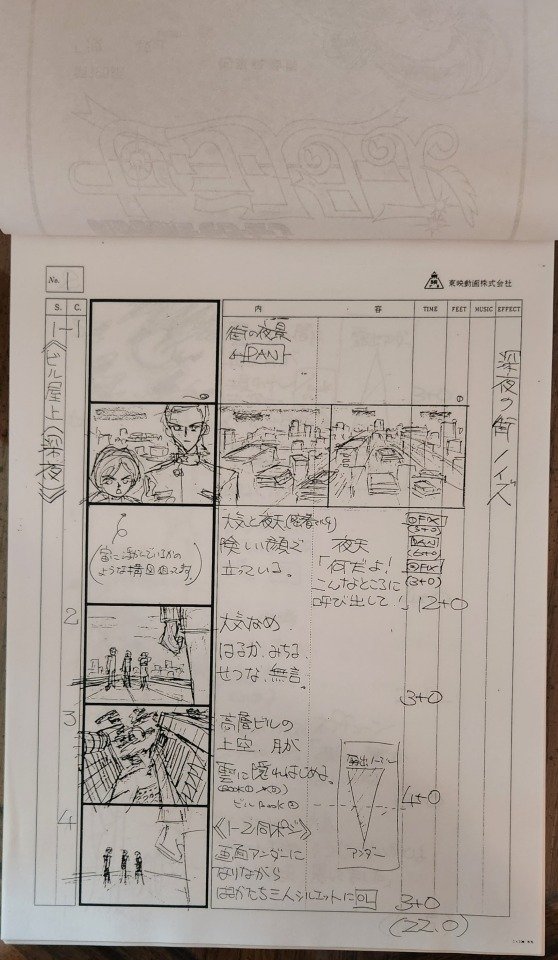 No. 1
東映動画株式会社
S. C. 内 容 TIME FEET MUSIC EFFECT
1-1
《ビル屋上(深夜)》
街の夜景
PAN
深夜の街ノイズ
大気と夜天
険しい顔で
立っている。
夜天
「何だよ!
こんなところに
呼び出して!
FIX
(3+0)
PAN
(6+0)
FIX
(3+0)
12+0
2
大気なめ
はるか、みちる
せつな、無言。
3+0
3
高層ビルの
上空、月が
雲に隠れはじめる。
ビルBOOK
4+0
4
《1-2同ポジ》
画面アンダーに
なりながら
はるかたち三人シルエットに OL
アンダー
3+0
(22.0)